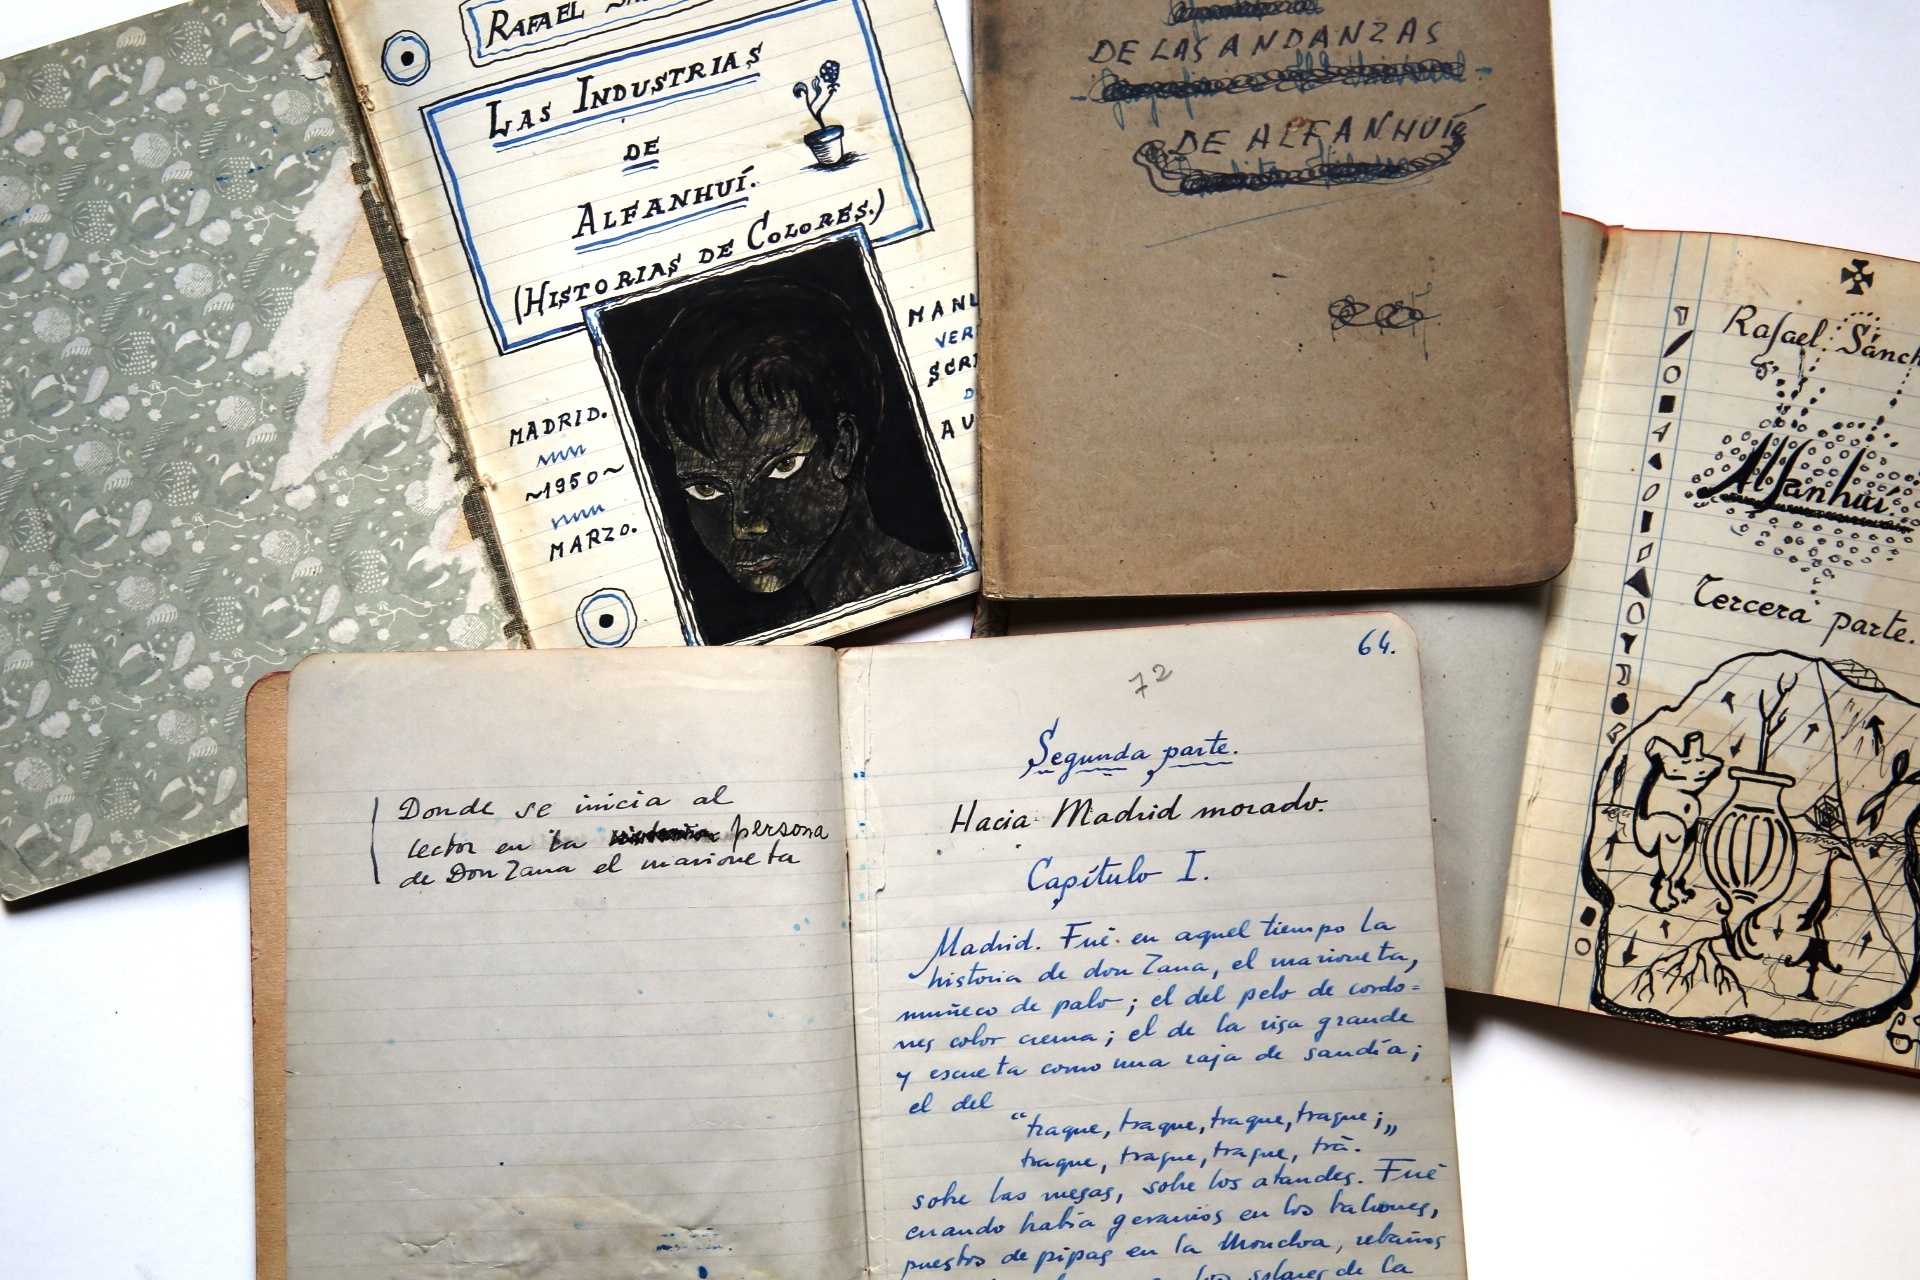 RAFAEL
LAS INDUSTRIAS
DE
ALFANHUÍ.
(HISTORIAS DE COLORES.)
MADRID.
~1950~
MARZO.
MANU
VER
SCRI
D
AU
DE LAS ANDANZAS
DE ALFANHUÍ
Rafael Sánch
Alfanhuí.
Tercera parte.
Donde se inicia al
lector en la persona
de Don Zana el marioneta
64.
72
Segunda parte.
Hacia Madrid morado.
Capítulo I.
Madrid. Fué en aquel tiempo la
historia de don Zana, el marioneta,
muñeco de palo; el del pelo de cordo=
nes color crema; el de la risa grande
y escueta como una raja de sandía;
el del
“traque, traque, traque, traque;„
traque, traque, traque, trá.
sobre las mesas, sobre los ataudes. Fué
cuando había geranios en los balcones,
puestos de pipas en la Moncloa, rebaños
los solares de la